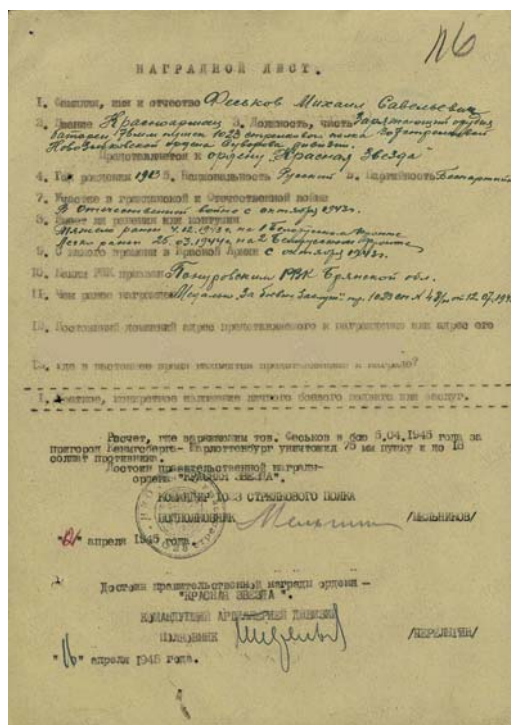 116
НАГРАДНОЙ ЛИСТ.
1. Фамилия, имя и отчество Феськов Михаил Савельевич
2. Звание Красноармеец 3. Должность, часть Заряжающий орудия
батареи 76мм пушек 1023 стрелкового полка 307 стрелковой
Новозыбковской ордена Суворова дивизии.
Представляется к ордену "Красная Звезда"
4. Год рождения 1923 5. Национальность Русский 6. Партийность Беспартийный
7. Участие в гражданской и Отечественной войне
В Отечественной войне с октября 1943г.
8. Имеет ли ранения или контузии
Тяжело ранен 4.12.1943г. на 1 Белорусском фронте
Легко ранен 25.03.1944г. на 2 Белорусском фронте
9. С какого времени в Красной Армии с октября 1943г.
10. Каким РВК призван Понуровским РВК Брянской обл.
11. Чем ранее награжден Медалью "За боевые заслуги" пр. 1023 сп
12. Постоянный домашний адрес представляемого к награждению или адрес его
13. где в настоящее время находится представляемый к награде?
1. Краткое, конкретное изложение личного боевого подвига или заслуг.
Расчет, где заряжающим тов. Феськов в бою 6.04.1945 года за
пригород Кенигсберга- Шарлоттенбург уничтожил 75 мм пушку и до
солдат противника.
Достоин правительственной награды-
ордена "КРАСНАЯ ЗВЕЗДА".
КОМАНДИР 1023 СТРЕЛКОВОГО ПОЛКА
ПОДПОЛКОВНИК /МЕЛЬНИКОВ/
апреля 1945 года.
Достоин правительственной награды ордена –
"КРАСНАЯ ЗВЕЗДА".
КОМАНДУЮЩИЙ АРТИЛЛЕРИЕЙ ДИВИЗИИ
ПОЛКОВНИК
"16" апреля 1945 года.